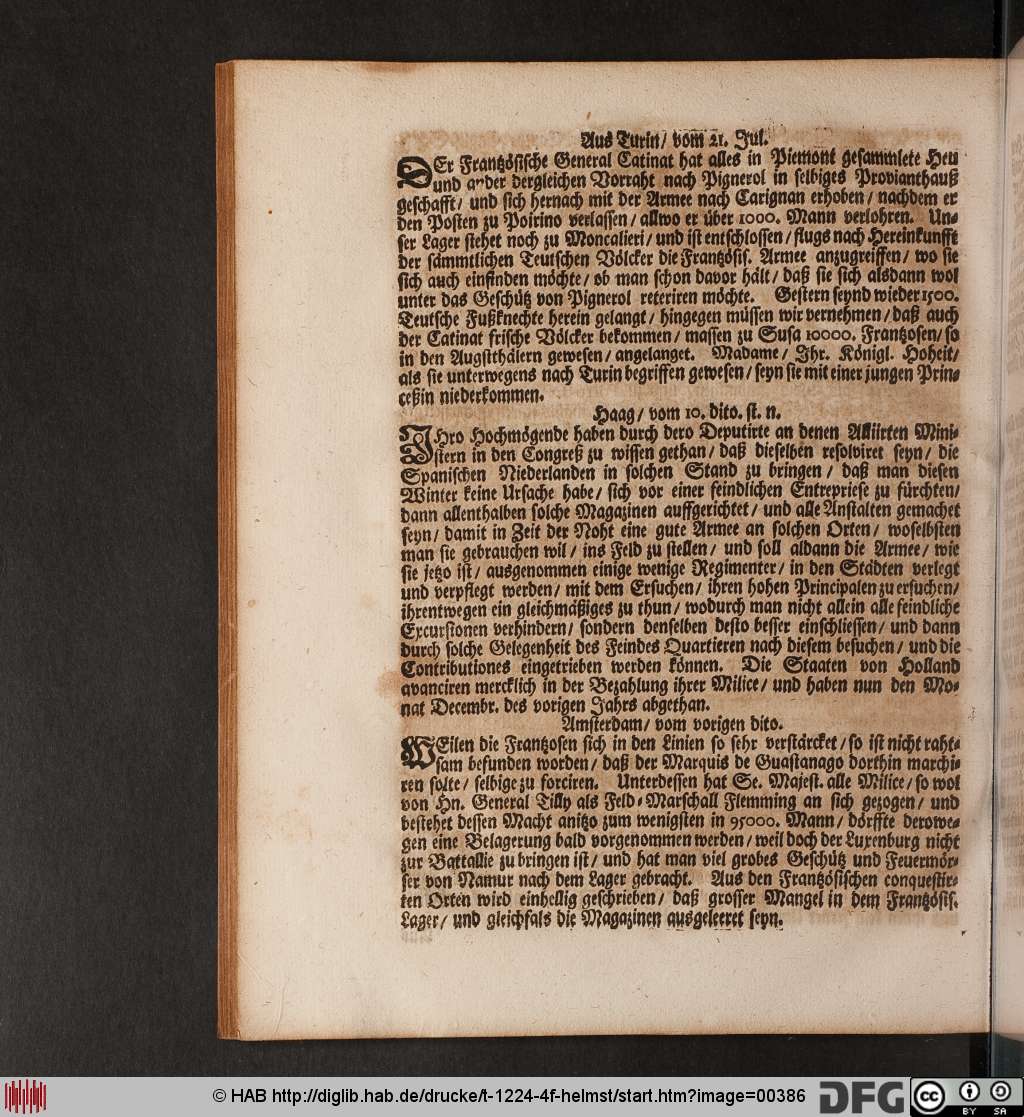 Aus Turin/ vom 21. Jul.
DEr Frantzösische General Catinat hat alles in Piemont gesammlete Heu
und ander dergleichen Vorraht nach Pignerol in selbiges Provianthauß
geschafft/ und sich hernach mit der Armee nach Carignan erhoben/ nachdem er
den Posten zu Poirino verlassen/ allwo er über 1000. Mann verlohren. Un-
ser Lager stehet noch zu Moncalieri/ und ist entschlossen/ flugs nach Hereinkunfft
der sämmtlichen Teutschen Völcker die Frantzösis. Armee anzugreiffen/ wo sie
sich auch einfinden möchte/ ob man schon davor hält/ daß sie sich alsdann wol
unter das Geschütz von Pignerol reteriren möchte. Gestern seynd wieder 1500.
Teutsche Fußknechte herein gelangt/ hingegen müssen wir vernehmen/ daß auch
der Catinat frische Völcker bekommen/ massen zu Susa 10000. Frantzosen/ so
in den Augstthälern gewesen/ angelanget. Madame/ Ihr. Königl. Hoheit/
als sie unterwegens nach Turin begriffen gewesen/ seyn sie mit einer jungen Prin-
ceßin niederkommen.
Haag/ vom 10. dito. st. n.
IHro Hochmögende haben durch dero Deputirte an denen Alliirten Mini-
stern in den Congreß zu wissen gethan/ daß dieselben resolviret seyn/ die
Spanischen Niederlanden in solchen Stand zu bringen/ daß man diesen
Winter keine Ursache habe/ sich vor einer feindlichen Entrepriese zu fürchten/
dann allenthalben solche Magazinen auffgerichtet/ und alle Anstalten gemachet
seyn/ damit in Zeit der Noht eine gute Armee an solchen Orten/ woselbsten
man sie gebrauchen wil/ ins Feld zu stellen/ und soll aldann die Armee/ wie
sie jetzo ist/ ausgenommen einige wenige Regimenter/ in den Städten verlegt
und verpflegt werden/ mit dem Ersuchen/ ihren hohen Principalen zu ersuchen/
ihrentwegen ein gleichmäßiges zu thun/ wodurch man nicht allein alle feindliche
Excursionen verhindern/ sondern denselben desto besser einschliessen/ und dann
durch solche Gelegenheit des Feindes Quartieren nach diesem besuchen/ und die
Contributiones eingetrieben werden können. Die Staaten von Holland
avanciren mercklich in der Bezahlung ihrer Milice/ und haben nun den Mo-
nat Decembr. des vorigen Jahrs abgethan.
Amsterdam/ vom vorigen dito.
WEilen die Frantzosen sich in den Linien so sehr verstärcket/ so ist nicht raht-
sam befunden worden/ daß der Marquis de Guastanago dorthin marchi-
ren solte/ selbige zu forciren. Unterdessen hat Se. Majest. alle Milice/ so wol
von Hn. General Tilly als Feld-Marschall Flemming an sich gezogen/ und
bestehet dessen Macht anitzo zum wenigsten in 95000. Mann/ dörffte derowe-
gen eine Belagerung bald vorgenommen werden/ weil doch der Luxenburg nicht
zur Battallie zu bringen ist/ und hat man viel grobes Geschütz und Feuermör-
ser von Namur nach dem Lager gebracht. Aus den Frantzösischen conquestir-
ten Orten wird einhellig geschrieben/ daß grosser Mangel in dem Frantzösis.
Lager/ und gleichfals die Magazinen ausgeleeret seyn.
© HAB http://diglib.hab.de/drucke/t-1224-4f-helmst/start.htm?image=00386
DFG
cc BY SA